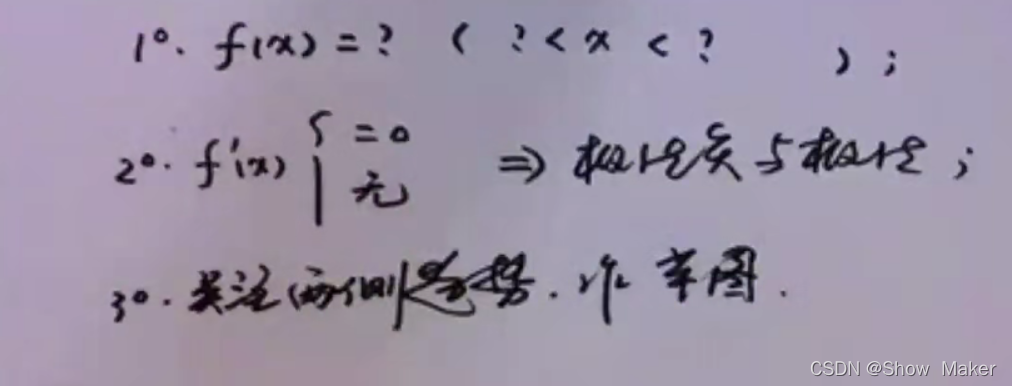 1°. f(x) = ? ( ? < x < ? ) ;
2°. f'(x) { = 0
无 ⇒ 极值点与极值 ;
3°. 关注两侧趋势. 作草图.
CSDN @Show Maker